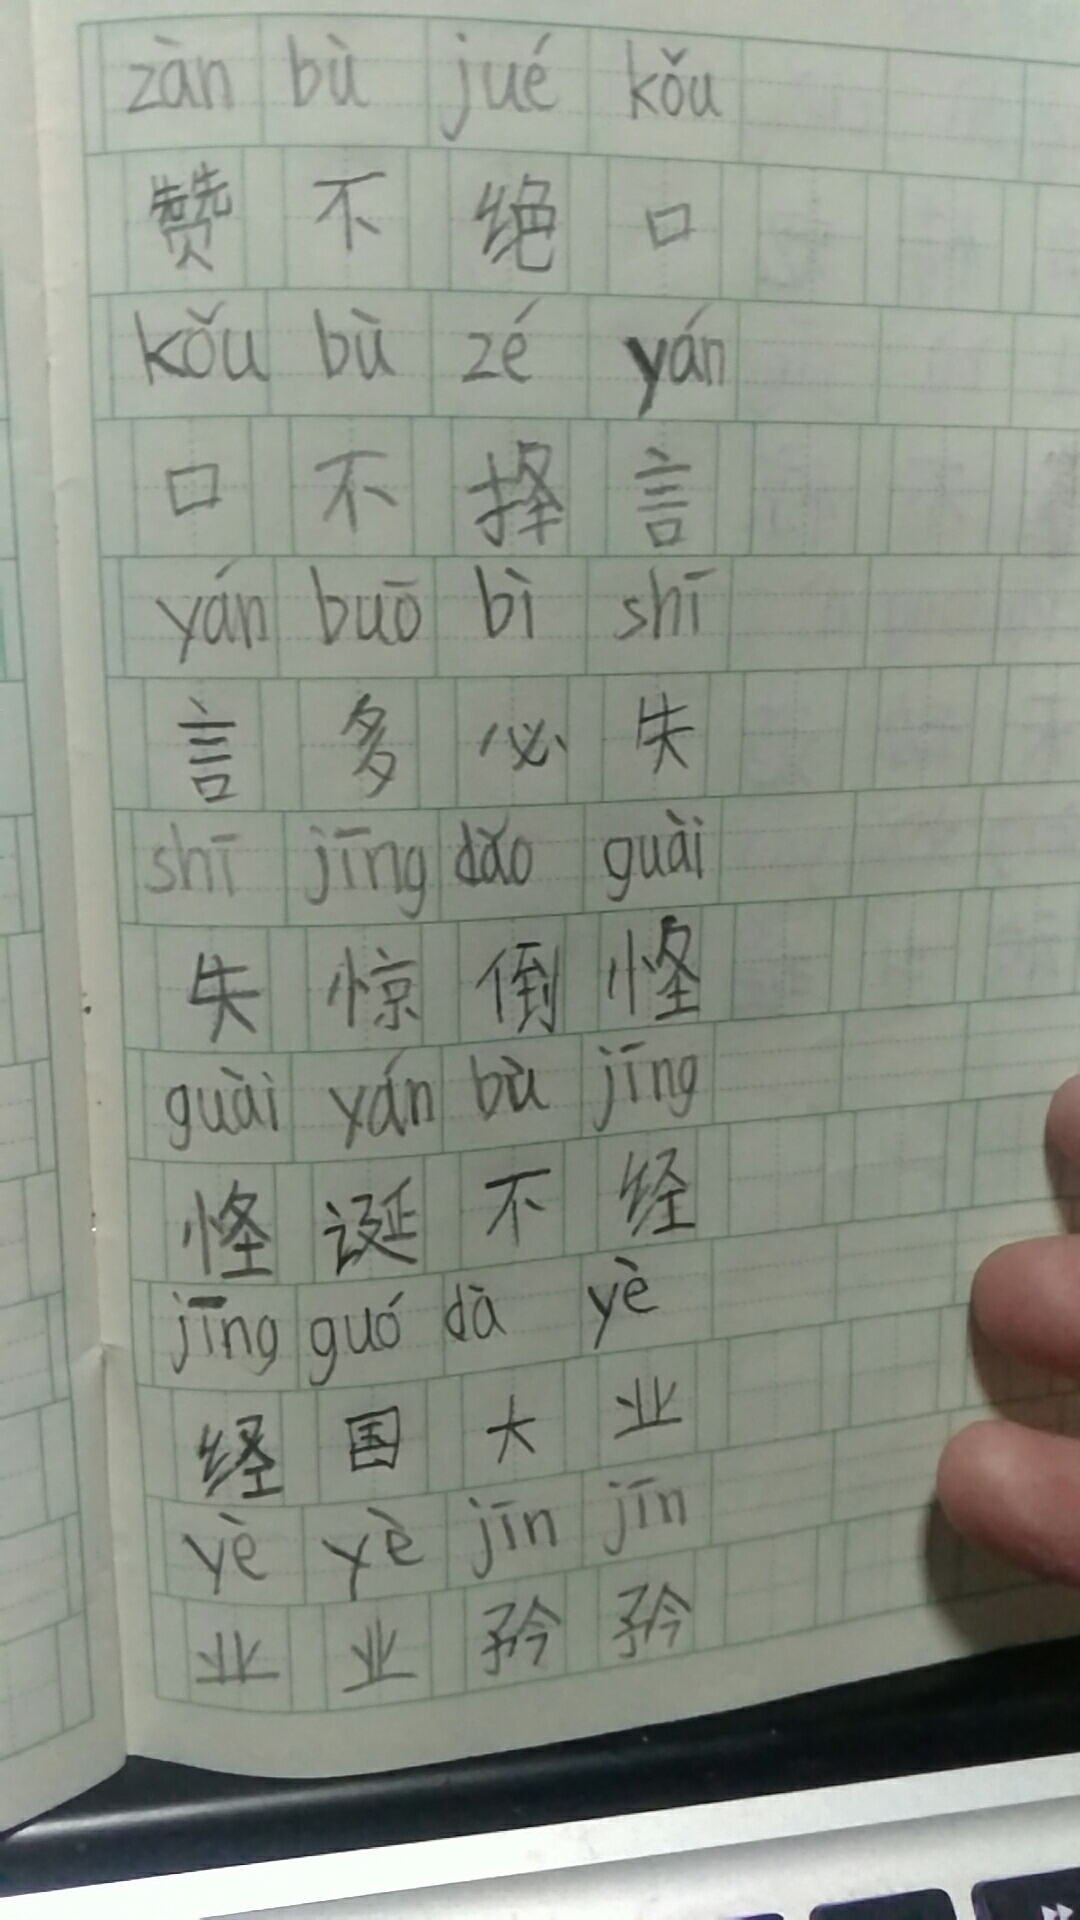 zàn bù jué kǒu
赞不绝口
kǒu bù zé yán
口不择言
yán buō bì shī
言多必失
shī jīng dǎo guài
失惊倒怪
guài yán bù jīng
怪诞不经
jīng guó dà yè
经国大业
yè yè jīn jīn
业业矜矜